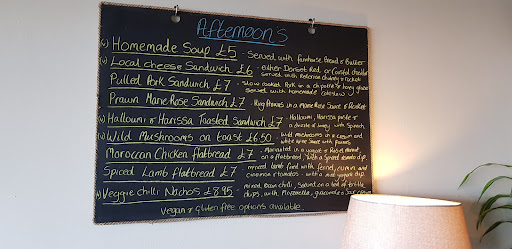 Afternoon's
(v) Homemade Soup £5 - Served with farmhouse Bread & Butter
(v) Local cheese Sandwich £6 - either Dorset Red, or Coastal cheddar
served with
chutney & rocket
Pulled Pork Sandwich £7 - slow cooked Pork in a chipotle & honey glaze
served with homemade coleslaw
Prawn Marie Rose Sandwich £7 - King Prawns in a Marie Rose Sauce & Rocket
(v) Halloumi & Harissa Toasted Sandwich £7 - Halloumi, Harissa paste &
a drizzle of honey with Spinach
(v) Wild Mushrooms on toast £6.50 - wild mushrooms in a cream and
white wine Sauce with
Moroccan Chicken flatbread £7 - Marinated in a yogurt &
on a flatbread, with a Spiced tomato dip
Spiced Lamb flatbread £7 - minced lamb fried with fennel, cumin and
cinnamon & tomatoes - with a mint yogurt dip
(v) Veggie chilli Nachos £8.95 - mixed bean chilli, served on a bed of tortilla
chips, with Mozzarella, guacamole & Sour cream
Vegan & Gluten free options available